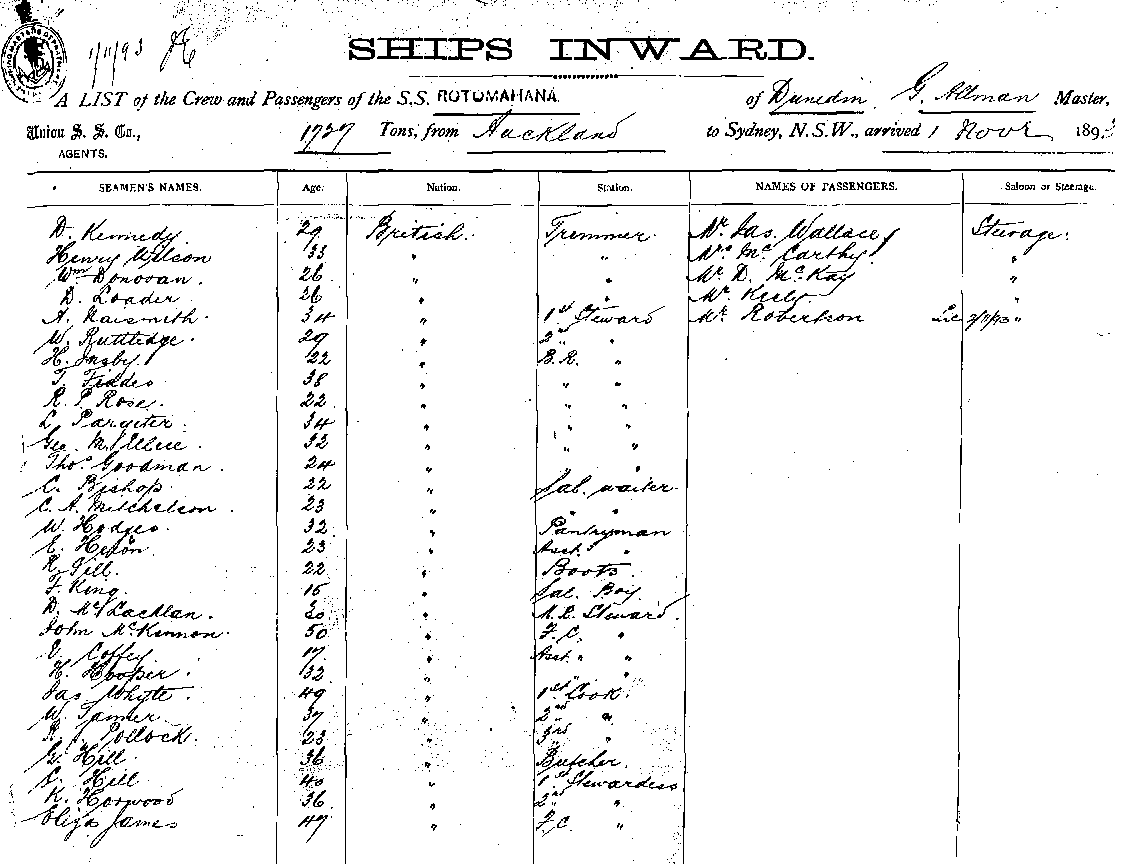 1/11/93
SHIPS INWARD.
A LIST of the Crew and Passengers of the S.S. ROTOMAHANA. of Dunedin G. Allman Master,
Union S. S. Co., 1727 Tons, from Auckland to Sydney, N.S.W., arrived 1 Novr 1893
AGENTS.
SEAMEN'S NAMES. Age. Nation. Station. NAMES OF PASSENGERS. Saloon or Steerage.
D. Kennedy 29 British. Trimmer Mr Jas. Wallace Steerage.
Henry Wilson 33 " " Mrs McCarthy "
Wm Donovan. 26 " " Mr D. McKay "
D. Loader 26 " " Mr Kiely "
A. Naismith 34 " 1st Steward Mr Robertson "
W. Ruttledge. 29 " 2nd "
H. 22 " B.R. "
T. Fiddes 38 " " "
R. P. Rose. 22 " " "
L. Pargiter. 34 " " "
Geo. 32 " " "
Thos Goodman. 24 " " "
C. Bishop. 22 " Sal. waiter
C. A. Mitchelson. 23 " " "
W. Hodges. 32 " Pantryman
E. Heron 23 " Asst. "
R. Gill. 22 " Boots
F. King. 15 " Sal. Boy.
D. McLachlan. 30 " Steward.
John McKinnon. 50 " F.C. "
Coffey 17 " Asst. " "
H. Hooper. 32 " " "
Jas Whyte. 49 " 1st Cook.
W. Tanner. 37 " 2nd "
Pollock. 23 " 3rd "
G. Hill. 36 " Butcher.
Hill 40 " 1st Stewardess
K. Horwood 36 " 2nd "
Eliza James 47 " F.C. "